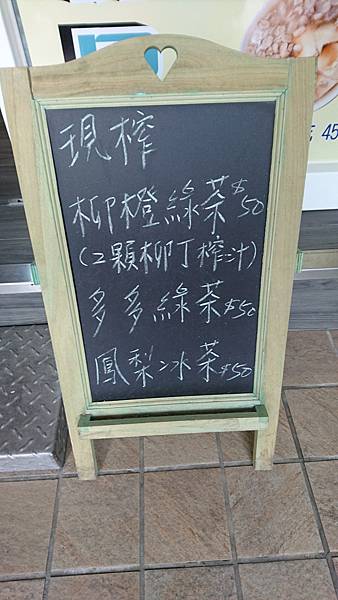 現榨
柳橙綠茶$50
(2顆柳丁榨汁)
多多綠茶$50
鳳梨冰茶$50
45